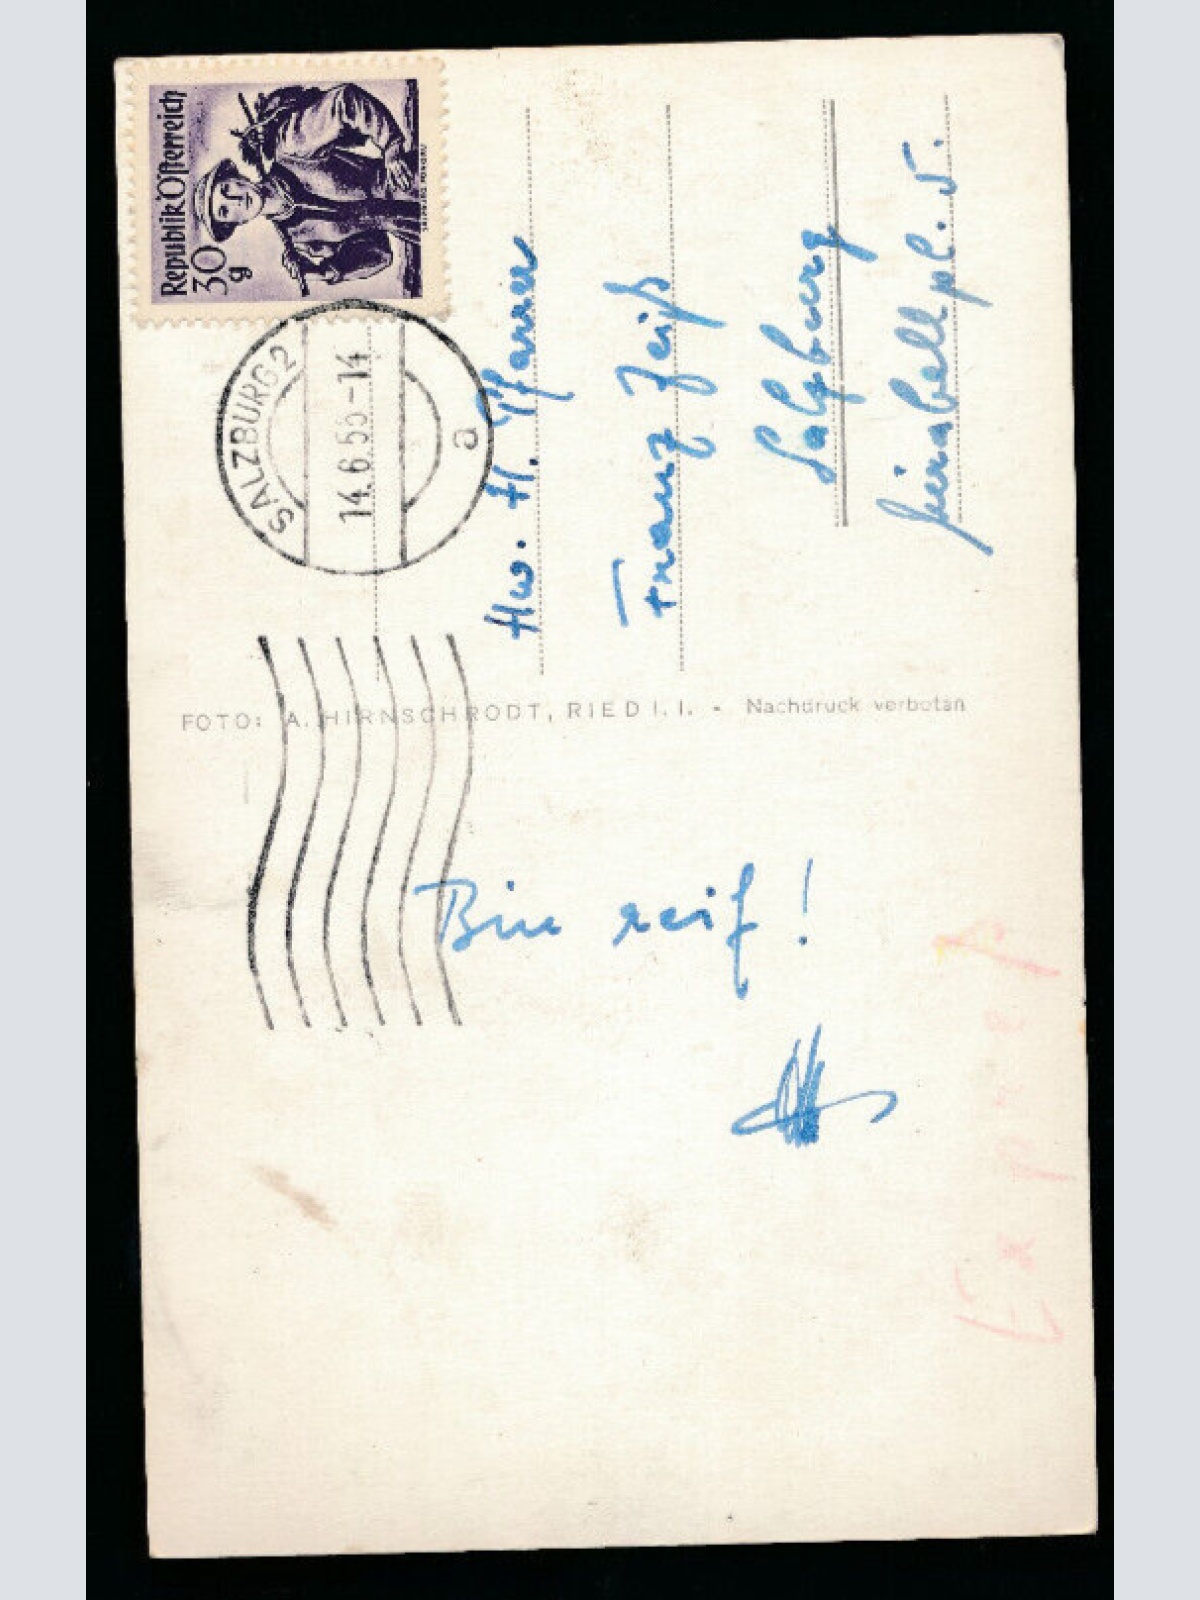 Republik Österreich
30
g
SALZBURG PONGAU
SALZBURG 2
14.6.55-14
a
Hw. H. Pfarrer
Franz Zeiß
Salzburg
Mirabellpl. 5.
FOTO: A. HIRNSCHRODT, RIED I. I. - Nachdruck verboten
Bin reif!
Expreß